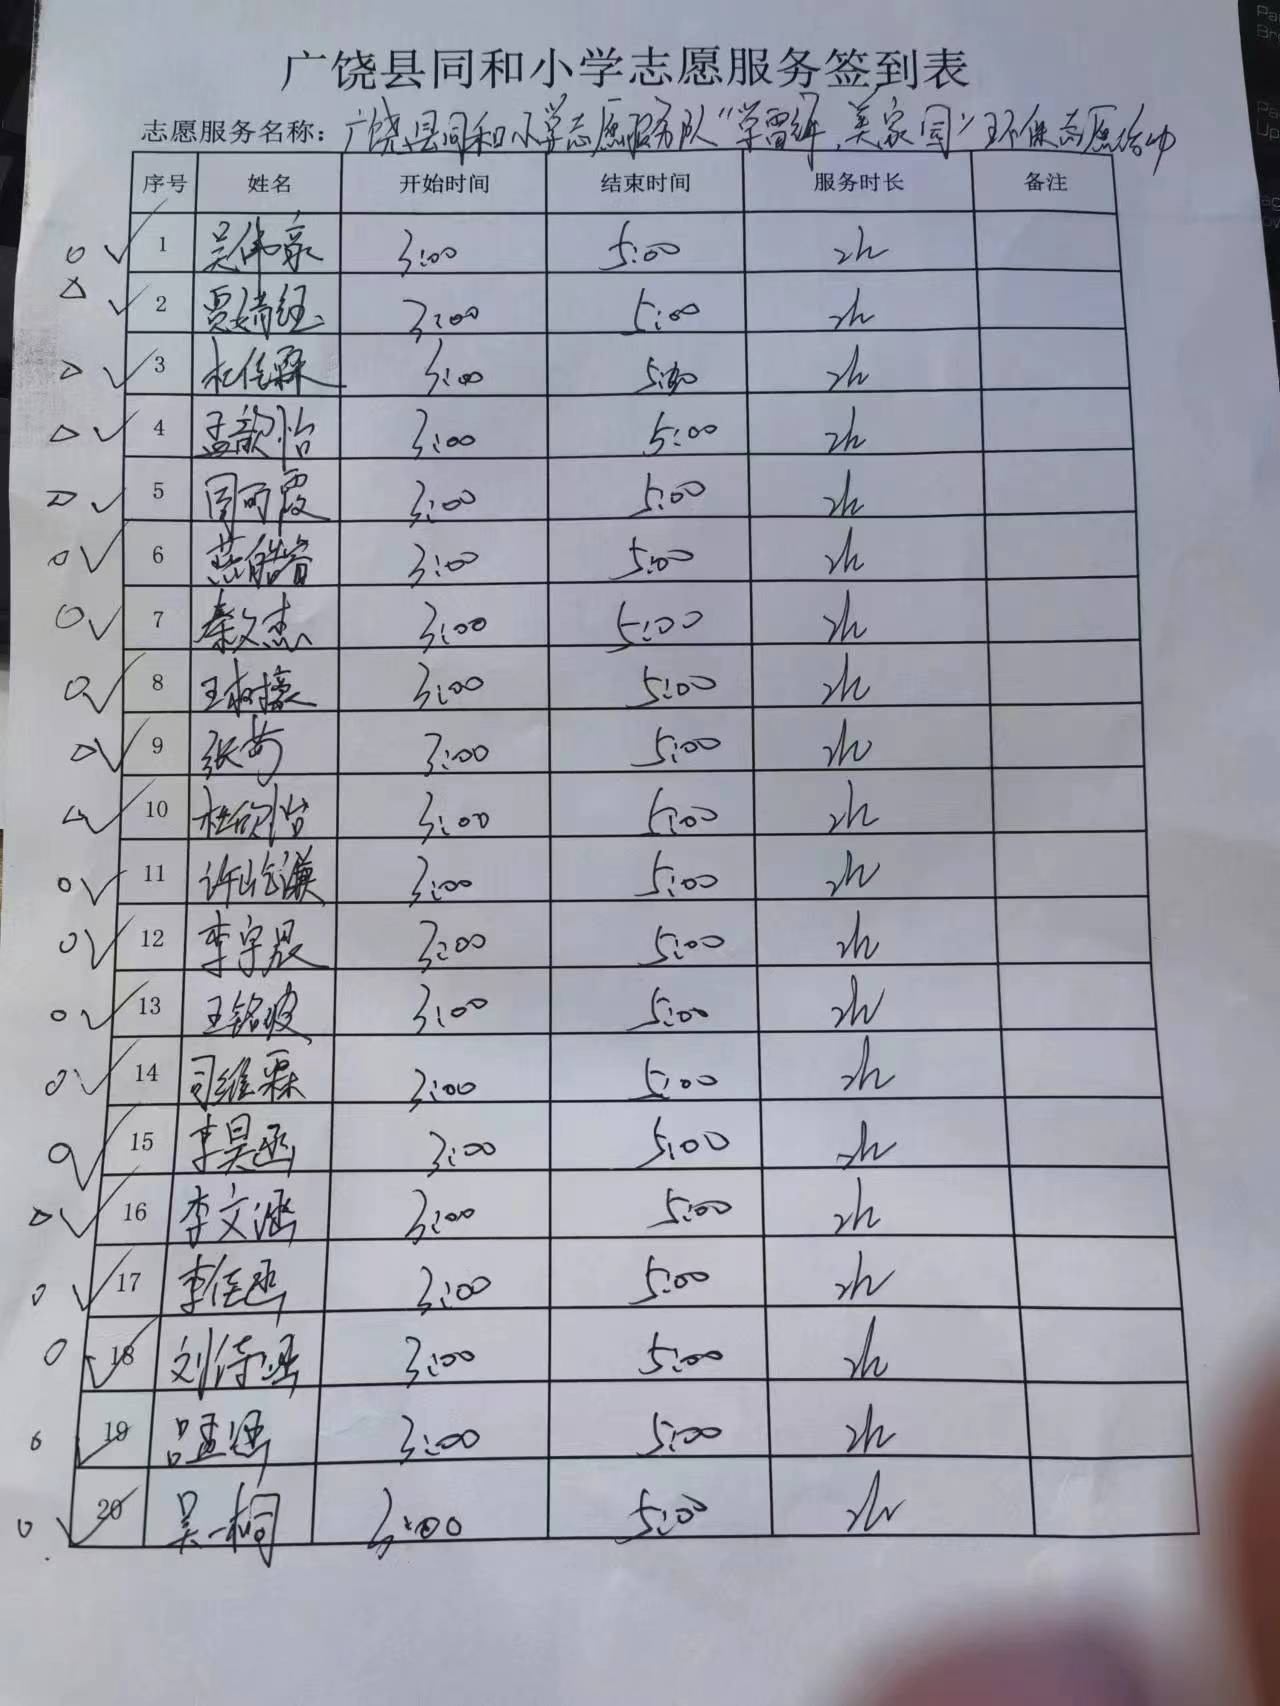 广饶县同和小学志愿服务签到表
志愿服务名称：广饶县同和小学志愿服务队“学雷锋，美家园”环保志愿活动
序号 姓名 开始时间 结束时间 服务时长 备注
1 吴伟豪 3:00 5:00 2h
2 贾婧钰 3:00 5:00 2h
3 杜佳霖 3:00 5:00 2h
4 孟歆怡 3:00 5:00 2h
5 周可霞 3:00 5:00 2h
6 燕皓睿 3:00 5:00 2h
7 秦文杰 3:00 5:00 2h
8 王树 3:00 5:00 2h
9 张 3:00 5:00 2h
10 杜欣怡 3:00 5:00 2h
11 许 谦 3:00 5:00 2h
12 李宇晟 3:00 5:00 2h
13 王铭波 3:00 5:00 2h
14 司维霖 3:00 5:00 2h
15 李昊函 3:00 5:00 2h
16 李文涵 3:00 5:00 2h
17 李佳函 3:00 5:00 2h
18 刘 涵 3:00 5:00 2h
19 吕孟涵 3:00 5:00 2h
20 吴一桐 3:00 5:00 2h